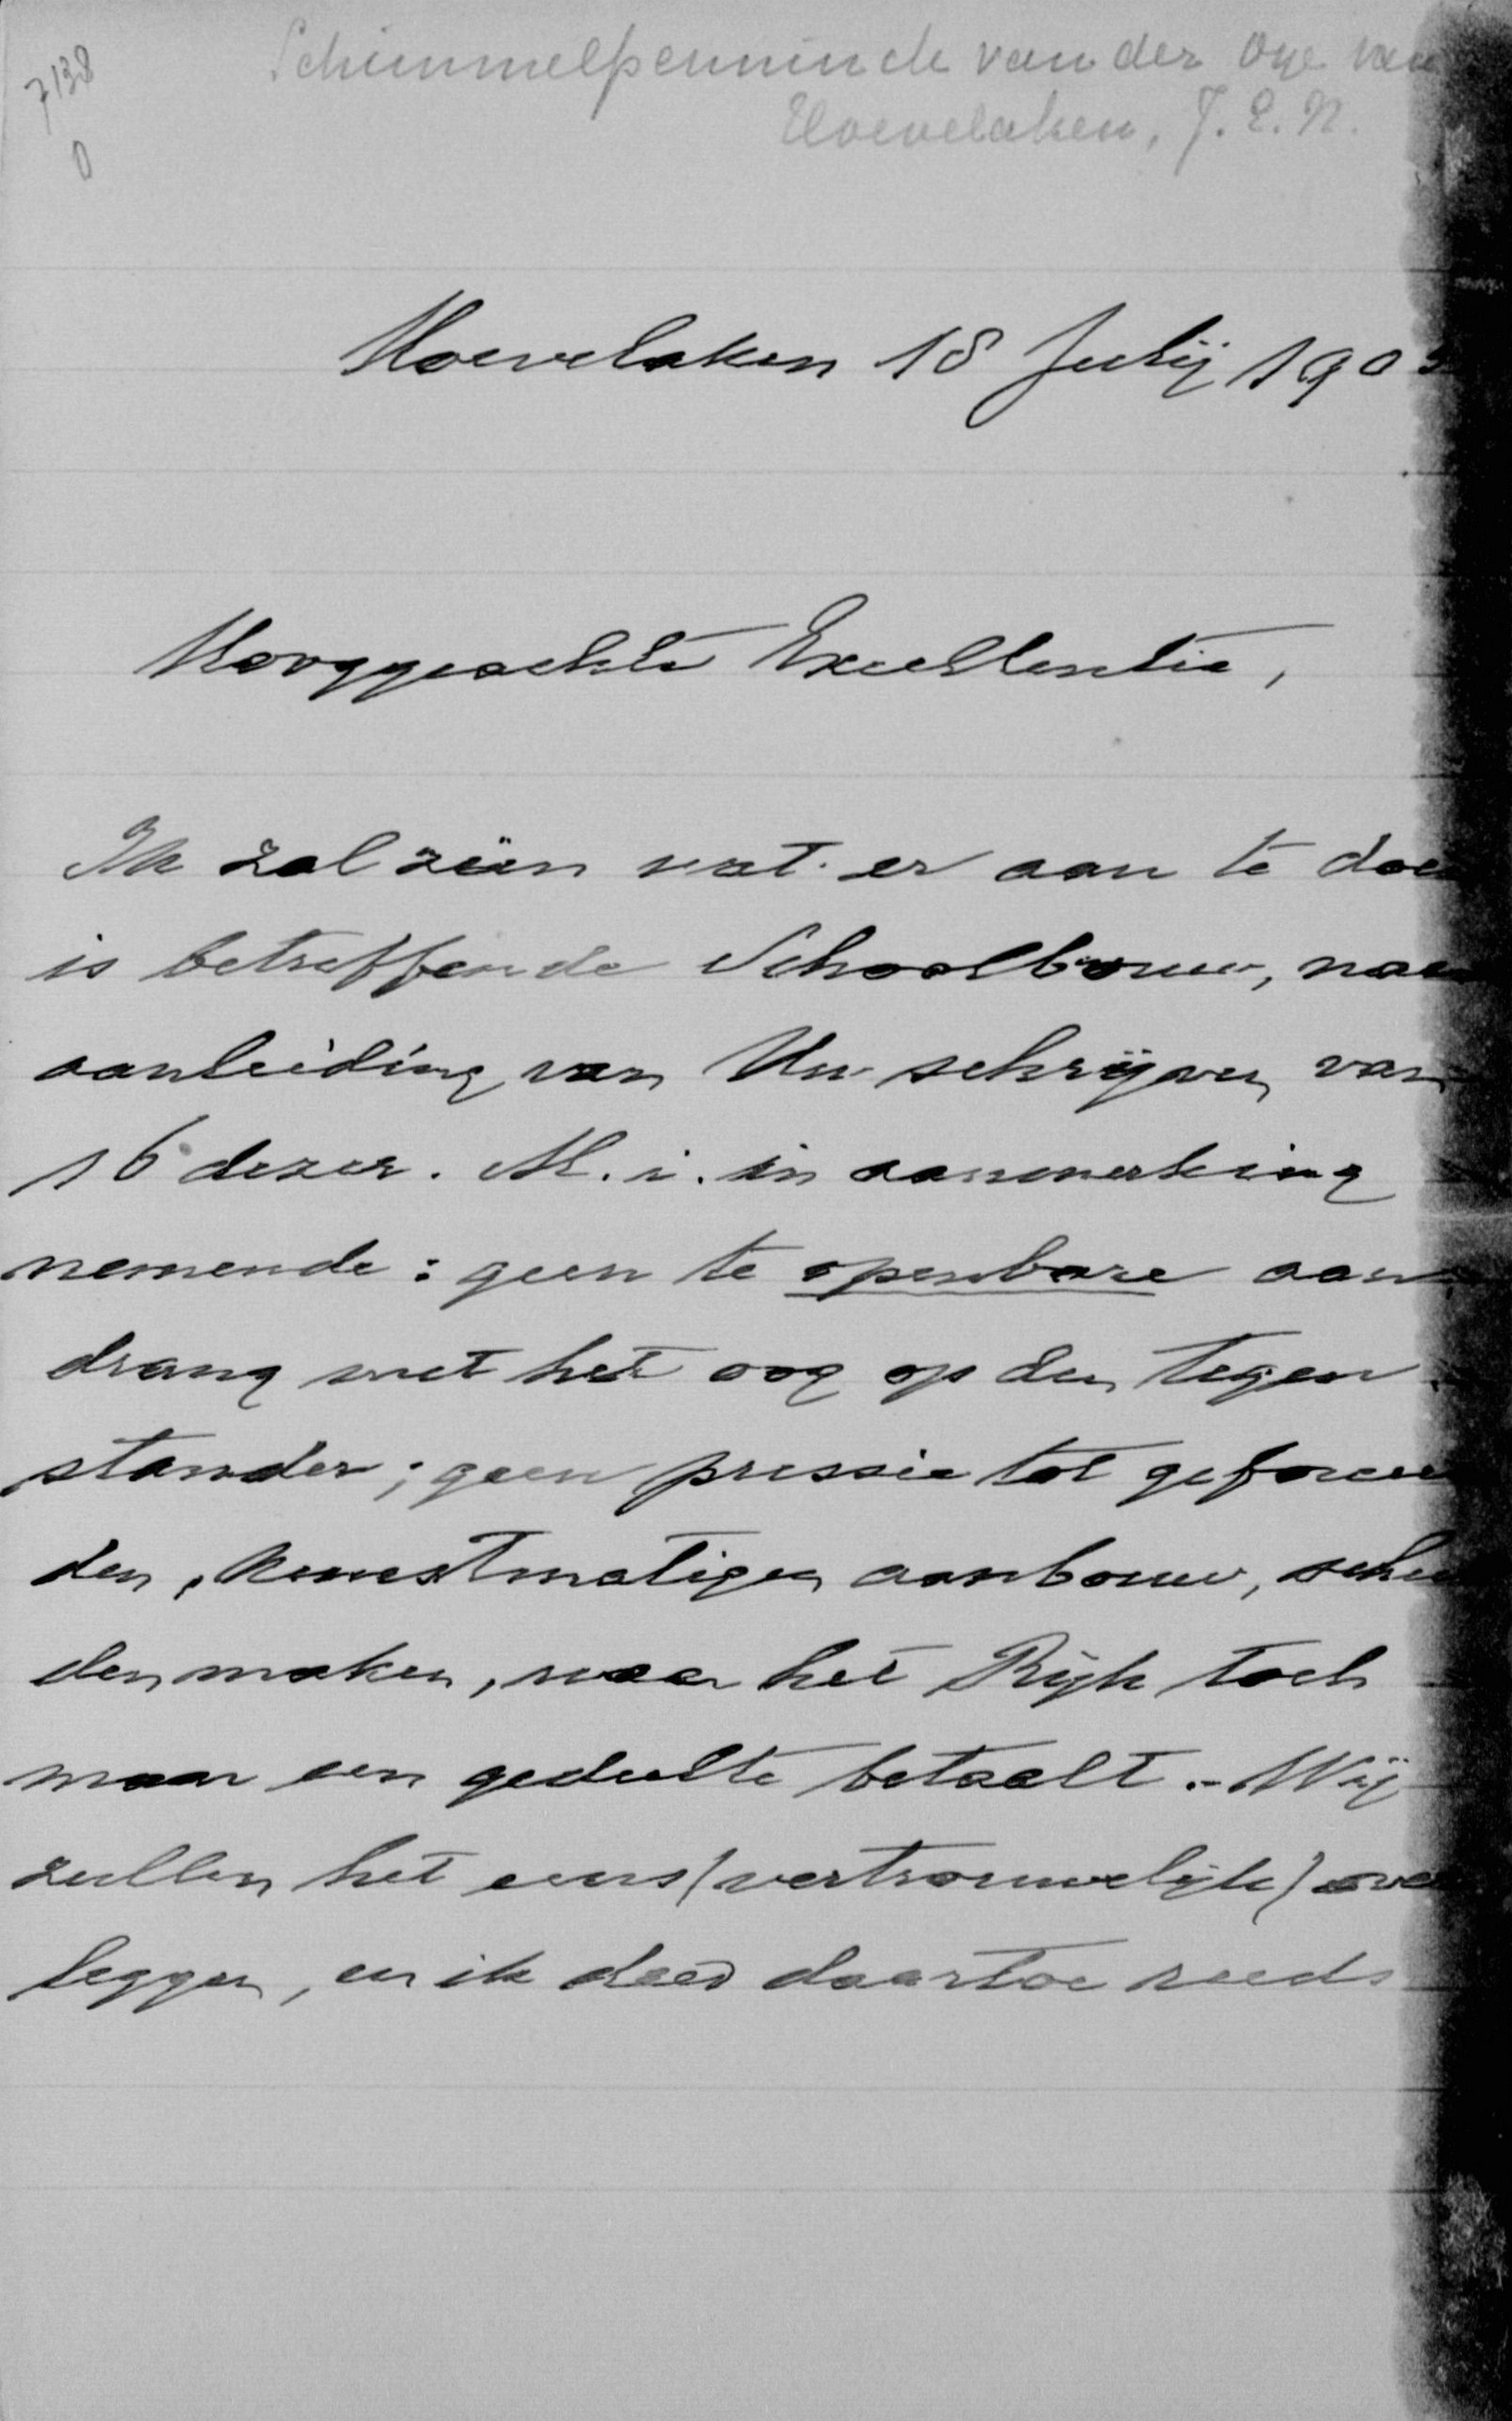 7138
0
Schimmelpenninck van der Oye van
Hoevelaken, J. E. N.
Hoevelaken 18 Julij 1905
Hooggeachte Excellentie,
Ik zal zien wat er aan te doen
is betreffende Schoolbouw, naar
aanleiding van Uw schrijven van
16 dezer. M. i. in aanmerking
nemende: geen te openbare aan
drang met het oog op den tegen
stander; geen pressie tot geforceer
den, kunstmatigen aanbouw, schul
den maken, waar het Rijk toch
maar een gedeelte betaalt. - Wij
zullen het eens (vertrouwelijk) over
leggen, en ik deed daartoe reeds